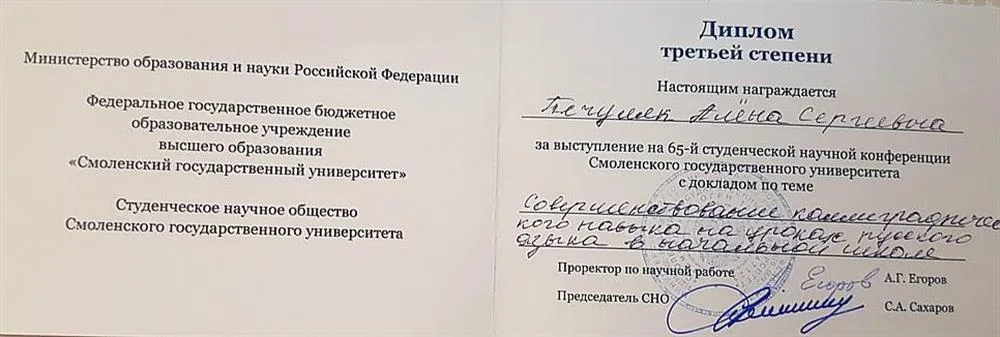 Министерство образования и науки Российской Федерации
Федеральное государственное бюджетное
образовательное учреждение
высшего образования
«Смоленский государственный университет»
Студенческое научное общество
Смоленского государственного университета
Диплом
третьей степени
Настоящим награждается
Печуляк Алёна Сергеевна
за выступление на 65-й студенческой научной конференции
Смоленского государственного университета
с докладом по теме
Совершенствование каллиграфичес
кого навыка на уроках русского
языка в начальной школе
Проректор по научной работе Егоров А.Г. Егоров
Председатель СНО С.А. Сахаров